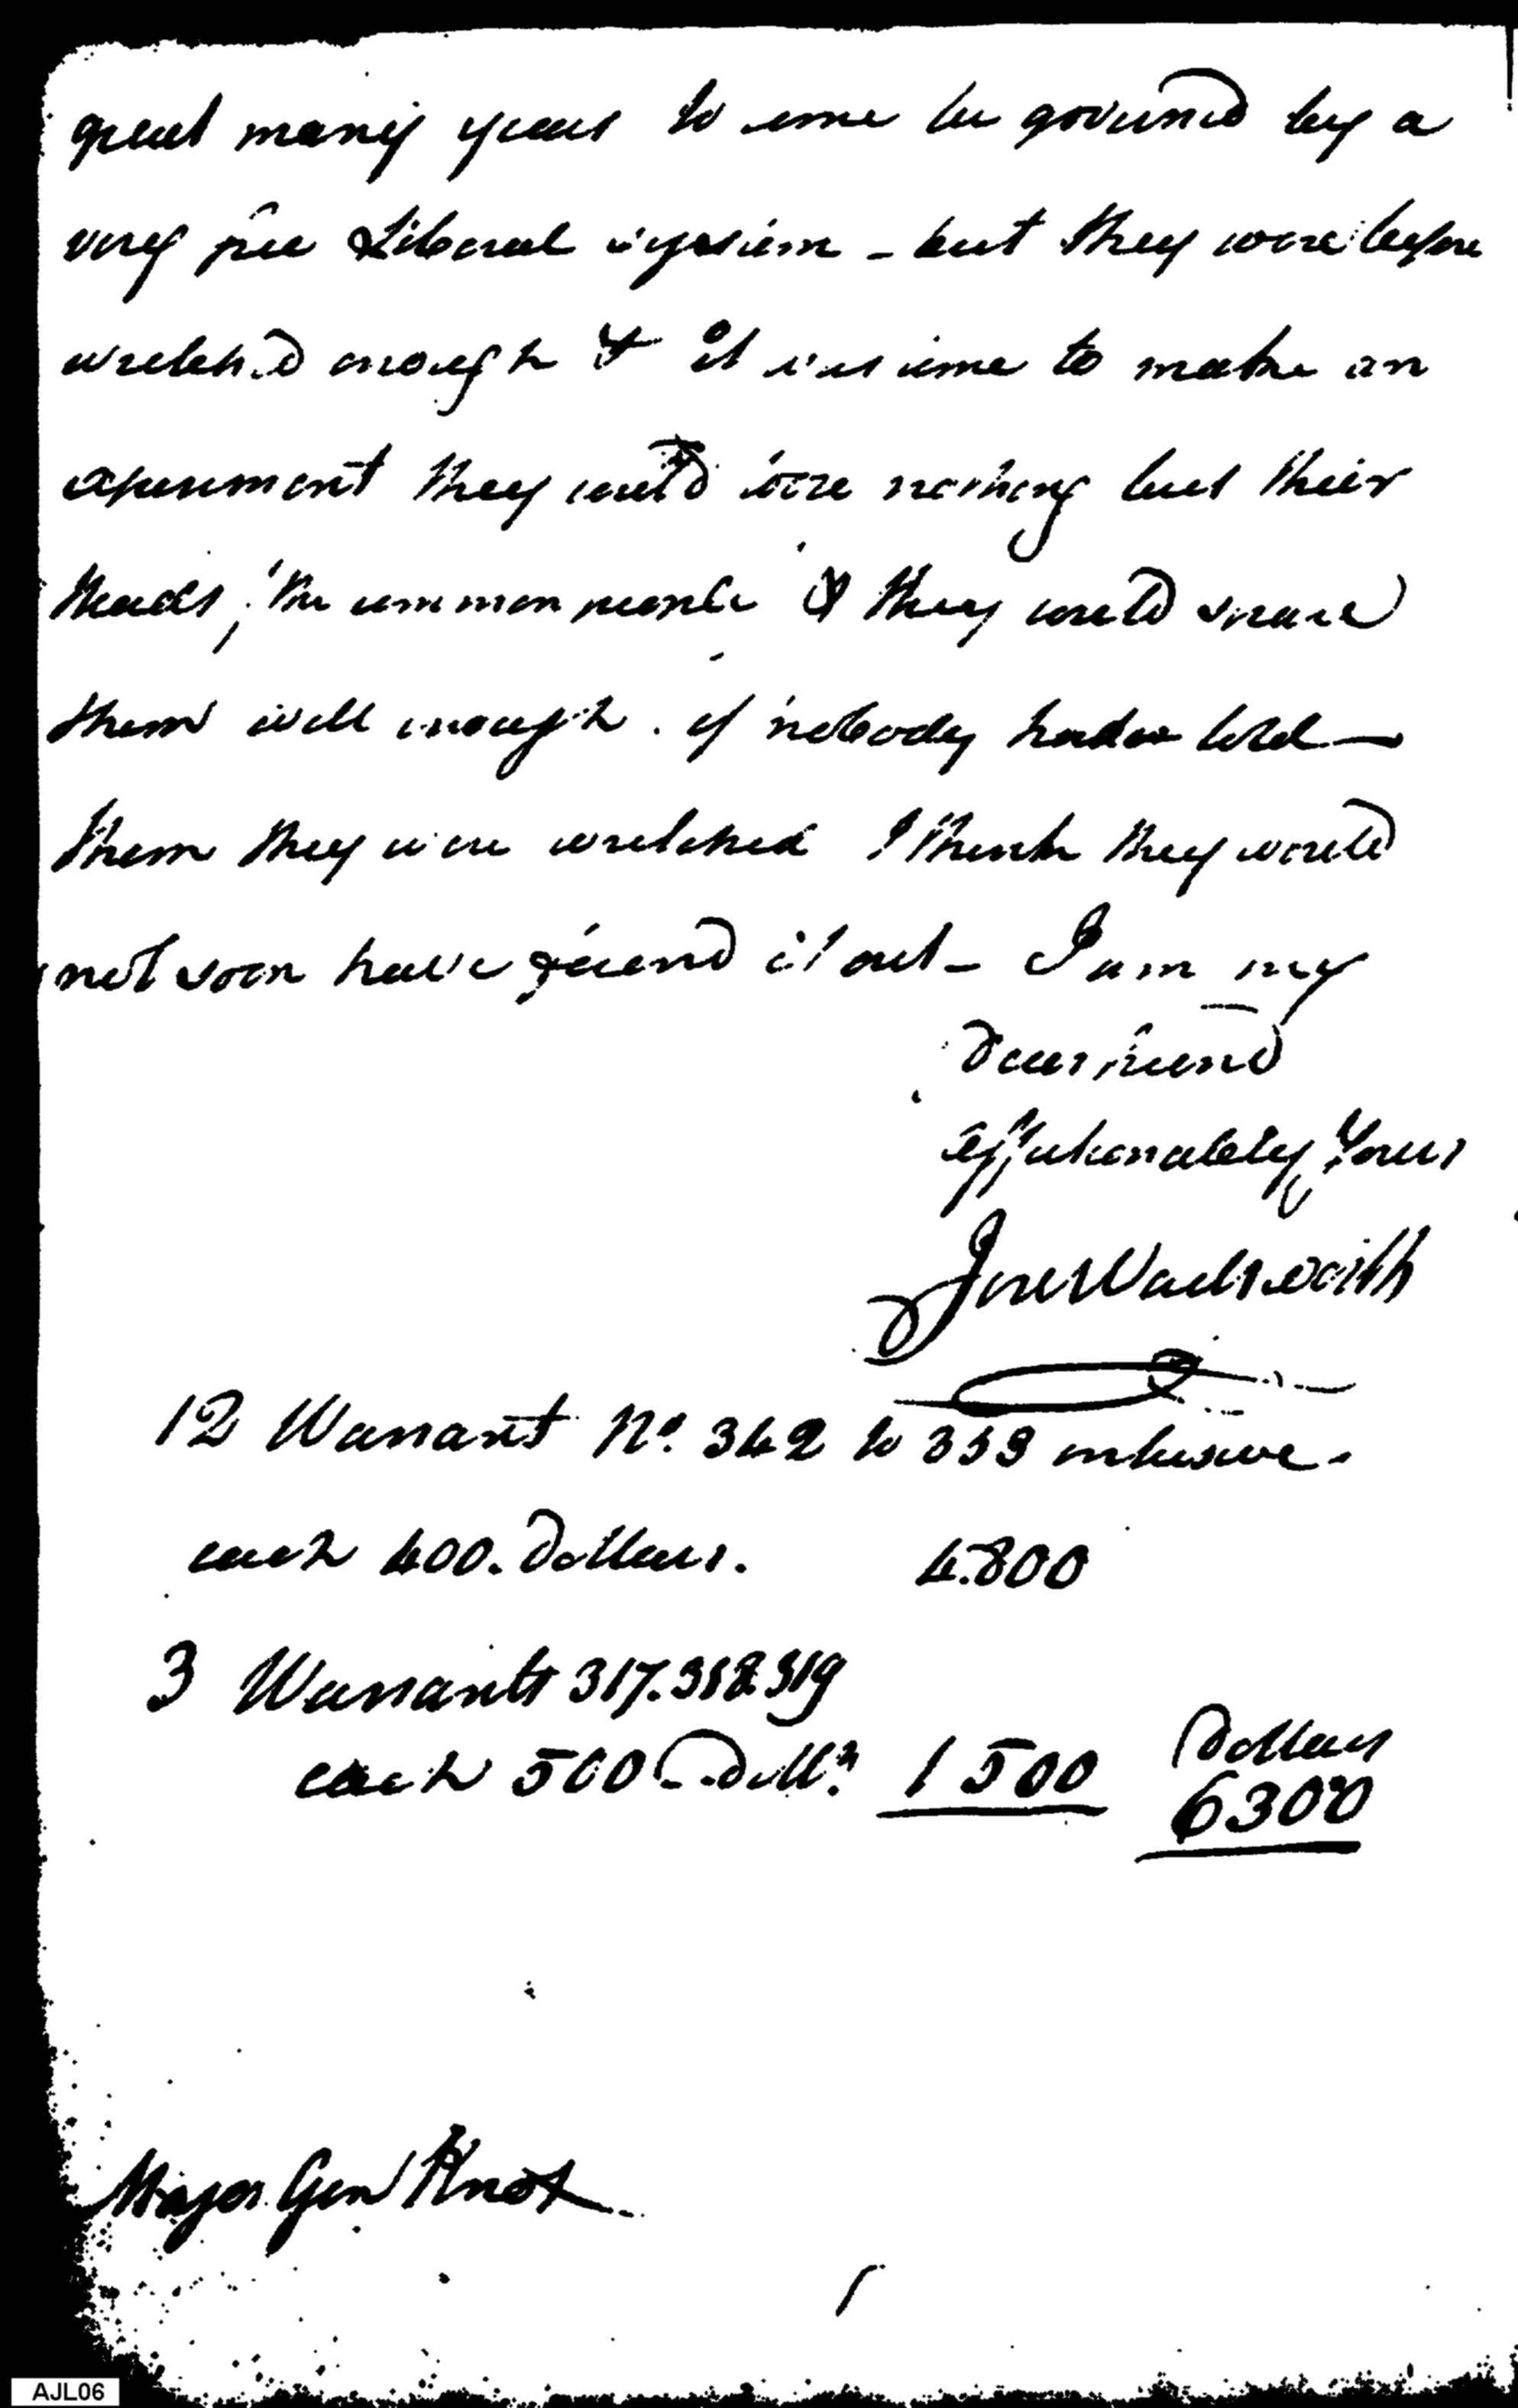 great many years to come be governd by a
very free Liberal system - but they were before
wretched enough & it was time to make an
experiment they could loose nothing but their
Heads, the common people & they could spare
them well enough. if nobody had told —
them they were wretched I think they would
not soon have found it out - I am my
dear friend
affectionately Yours
Jere Wadsworth
12 Warrant No. 342 to 353 inclusive -
each 400. Dollars. 4.800
3 Warrants 317. 318 319
each 500 Dolls. 1500 Dollars
6300
Major Gen Knox
AJL06